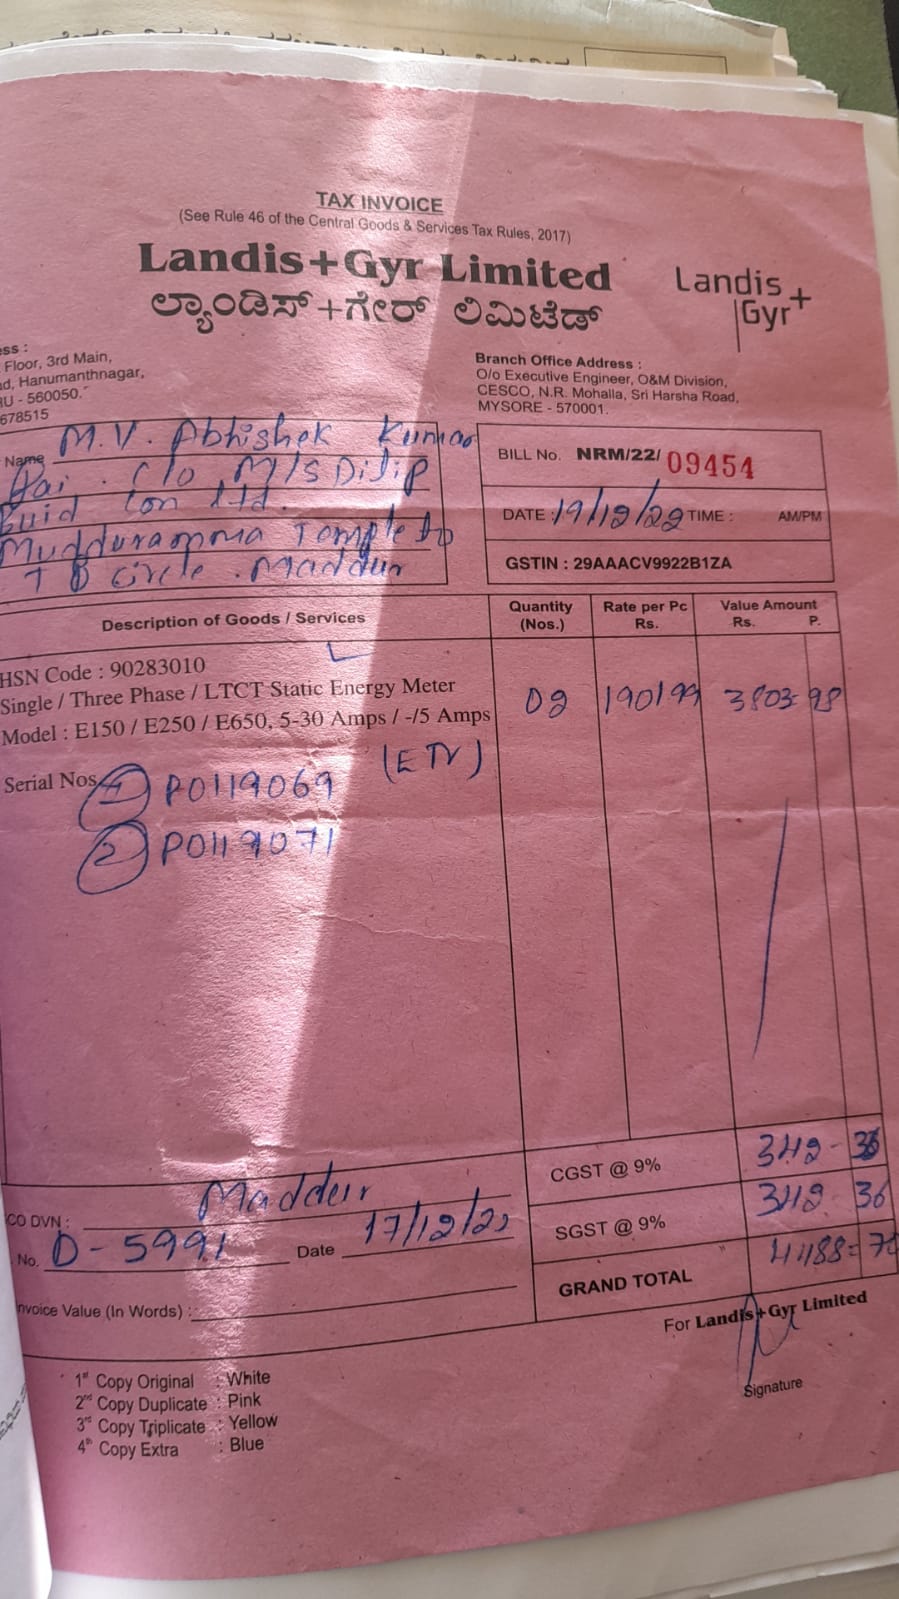 TAX INVOICE
(See Rule 46 of the Central Goods & Services Tax Rules, 2017)
Landis+Gyr Limited
ಲ್ಯಾಂಡಿಸ್+ಗೇರ್ ಲಿಮಿಟೆಡ್
Landis
Gyr+
ess :
Floor, 3rd Main,
d, Hanumanthnagar,
RU - 560050.
678515
Branch Office Address :
O/o Executive Engineer, O&M Division,
CESCO, N.R. Mohalla, Sri Harsha Road,
MYSORE - 570001.
Name M.V. Abhishek Kumar
C/o M/s Dilip
Buid Con Ltd.
Mudduramma Temple
T B Circle. Maddur
BILL No. NRM/22/ 09454
DATE : 19/12/22 TIME : AM/PM
GSTIN : 29AAACV9922B1ZA
Description of Goods / Services
Quantity (Nos.)
Rate per Pc Rs.
Value Amount Rs. P.
HSN Code : 90283010
Single / Three Phase / LTCT Static Energy Meter
Model : E150 / E250 / E650, 5-30 Amps / -/5 Amps
02 1901 99 3803 98
Serial Nos. 1 P0119069 (ETV)
2 P0119071
CGST @ 9% 342 - 36
SGST @ 9% 342 36
GRAND TOTAL 4488=70
CO DVN : Maddur
No. D-5991 Date 17/12/22
nvoice Value (In Words) :
For Landis+Gyr Limited
Signature
1st Copy Original : White
2nd Copy Duplicate : Pink
3rd Copy Triplicate : Yellow
4th Copy Extra : Blue